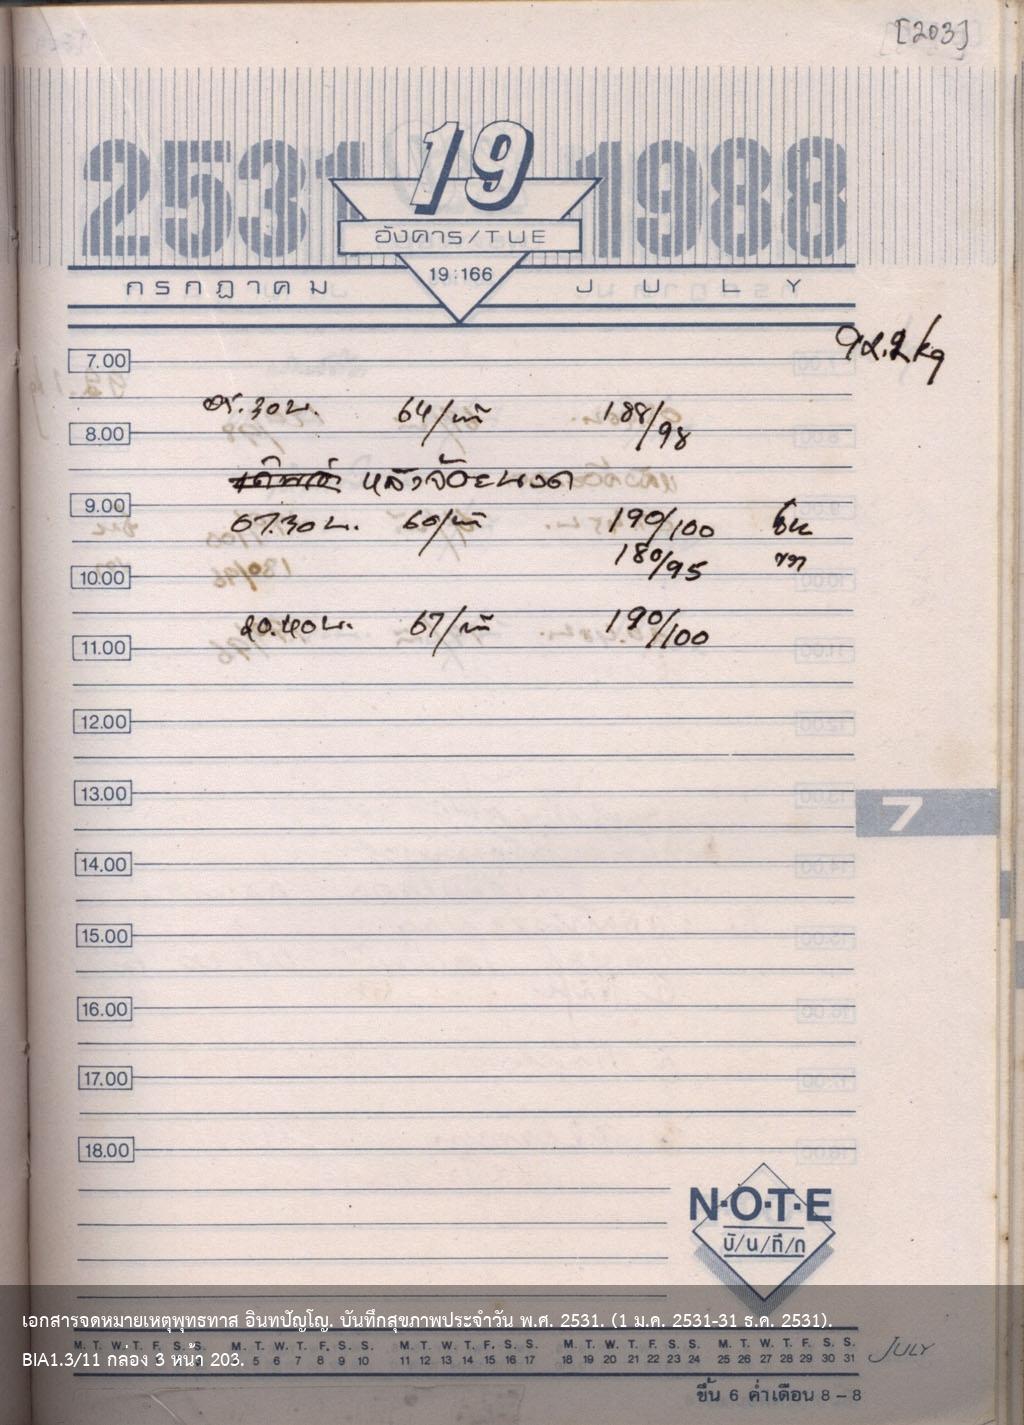 [203]
2531 19 1988
อังคาร/TUE
19:166
กรกฎาคม JULY
7.00
.30 น. 64/ 188/98
8.00
9.00
07.30น. 60/ 190/100
180/95
10.00
20.40น. 67/ 190/100
11.00
12.00
13.00
7
14.00
15.00
16.00
17.00
18.00
N·O·T·E
บั/น/ทึ/ก
เอกสารจดหมายเหตุพุทธทาส อินทปัญโญ. บันทึกสุขภาพประจำวัน พ.ศ. 2531. (1 ม.ค. 2531-31 ธ.ค. 2531).
M. T. W. T. F. S. S. M. T. W. T. F. S. S. M. T. W. T. F. S. S. M. T. W. T. F. S. S. M. T. W. T. F. S. S.
BIA1.3/11 กล่อง 3 หน้า 203.
5 6 7 8 9 10 11 12 13 14 15 16 17 18 19 20 21 22 23 24 25 26 27 28 29 30 31 JULY
ขึ้น 6 ค่ำเดือน 8 – 8